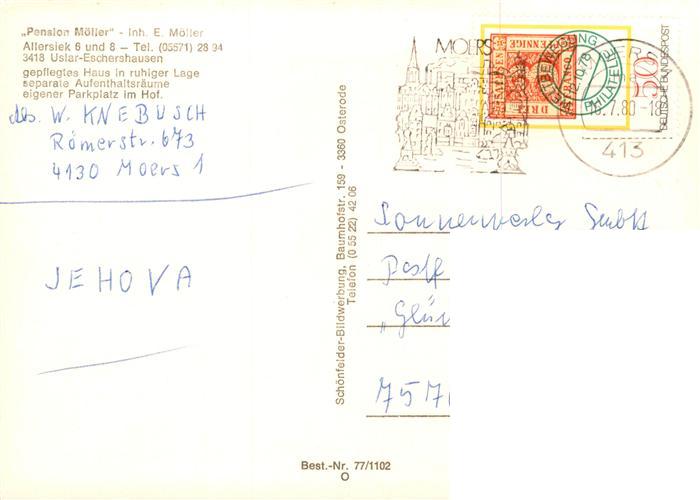 „Pension Möller" - Inh. E. Möller
Allersiek 6 und 8 — Tel. (05571) 28 94
3418 Uslar-Eschershausen
gepflegtes Haus in ruhiger Lage
separate Aufenthaltsräume
eigener Parkplatz im Hof.
Abs. W. KNEBUSCH
Römerstr. 673
4130 Moers 1
JEHOVA
Schönfelder-Bildwerbung, Baumhofstr. 159 - 3360 Osterode
Telefon (0 55 22) 42 06
MOERS
WELTBEWEGUNG PHILATELIE
50
DEUTSCHE BUNDESPOST
.7.80-18
413
Sonnenverlag GmbH
Postf
„Glü
757
Best.-Nr. 77/1102
O